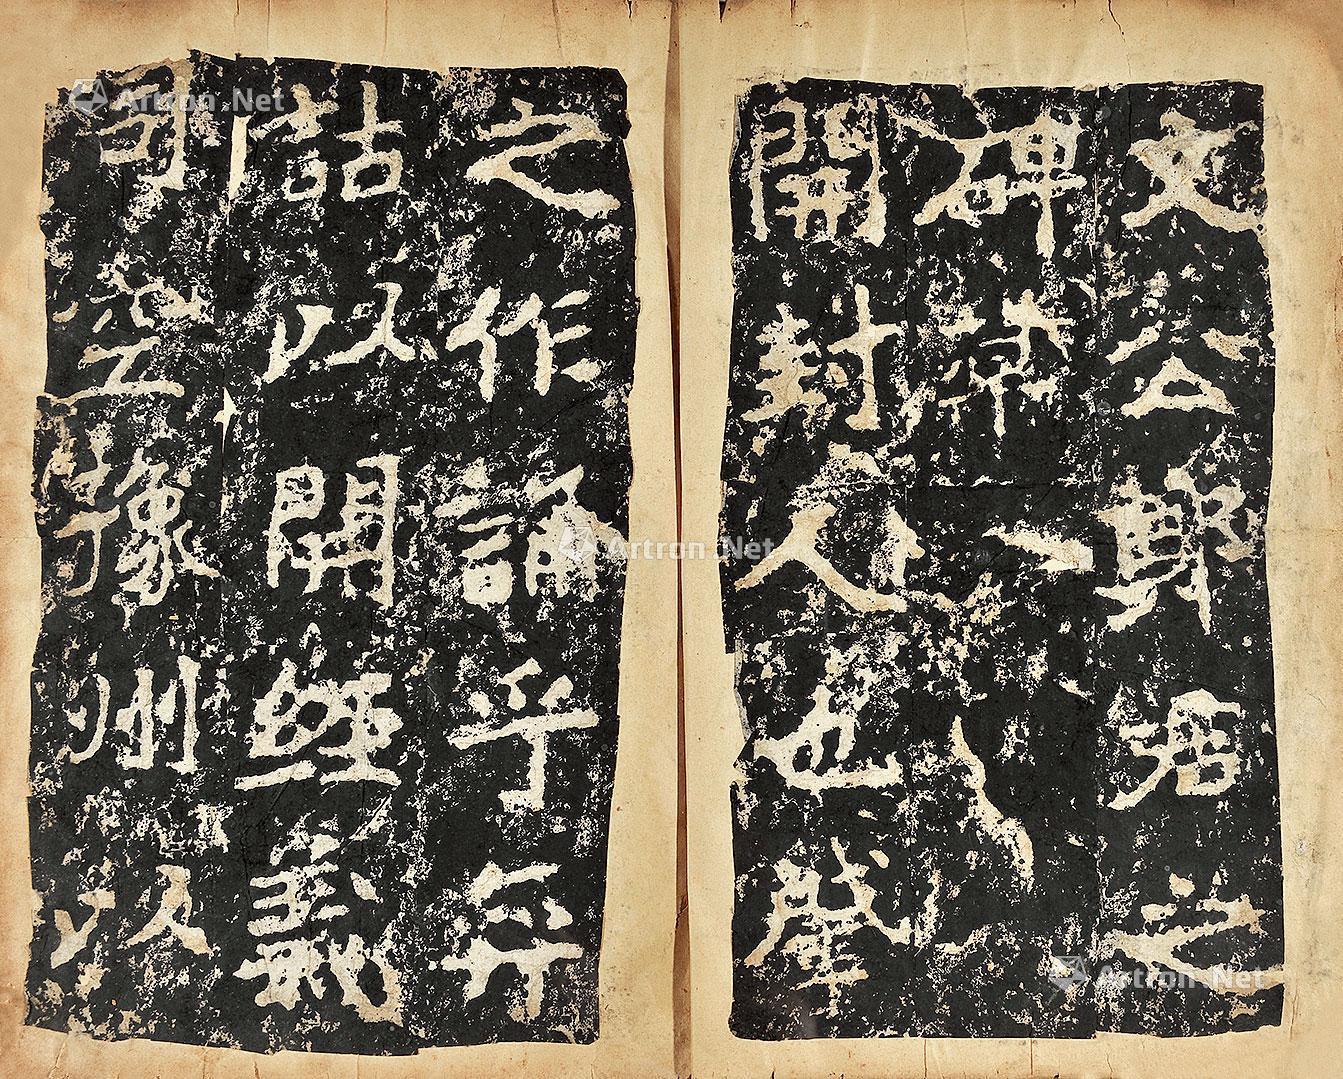 文公鄭君之
碑
開封人也肇
之作誦乎
詁以開經義
司空豫州以
Artron.Net
Artron.Net
Artron.Net